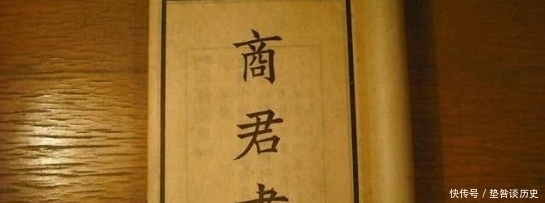 商君書
快传号／垫咎谈历史